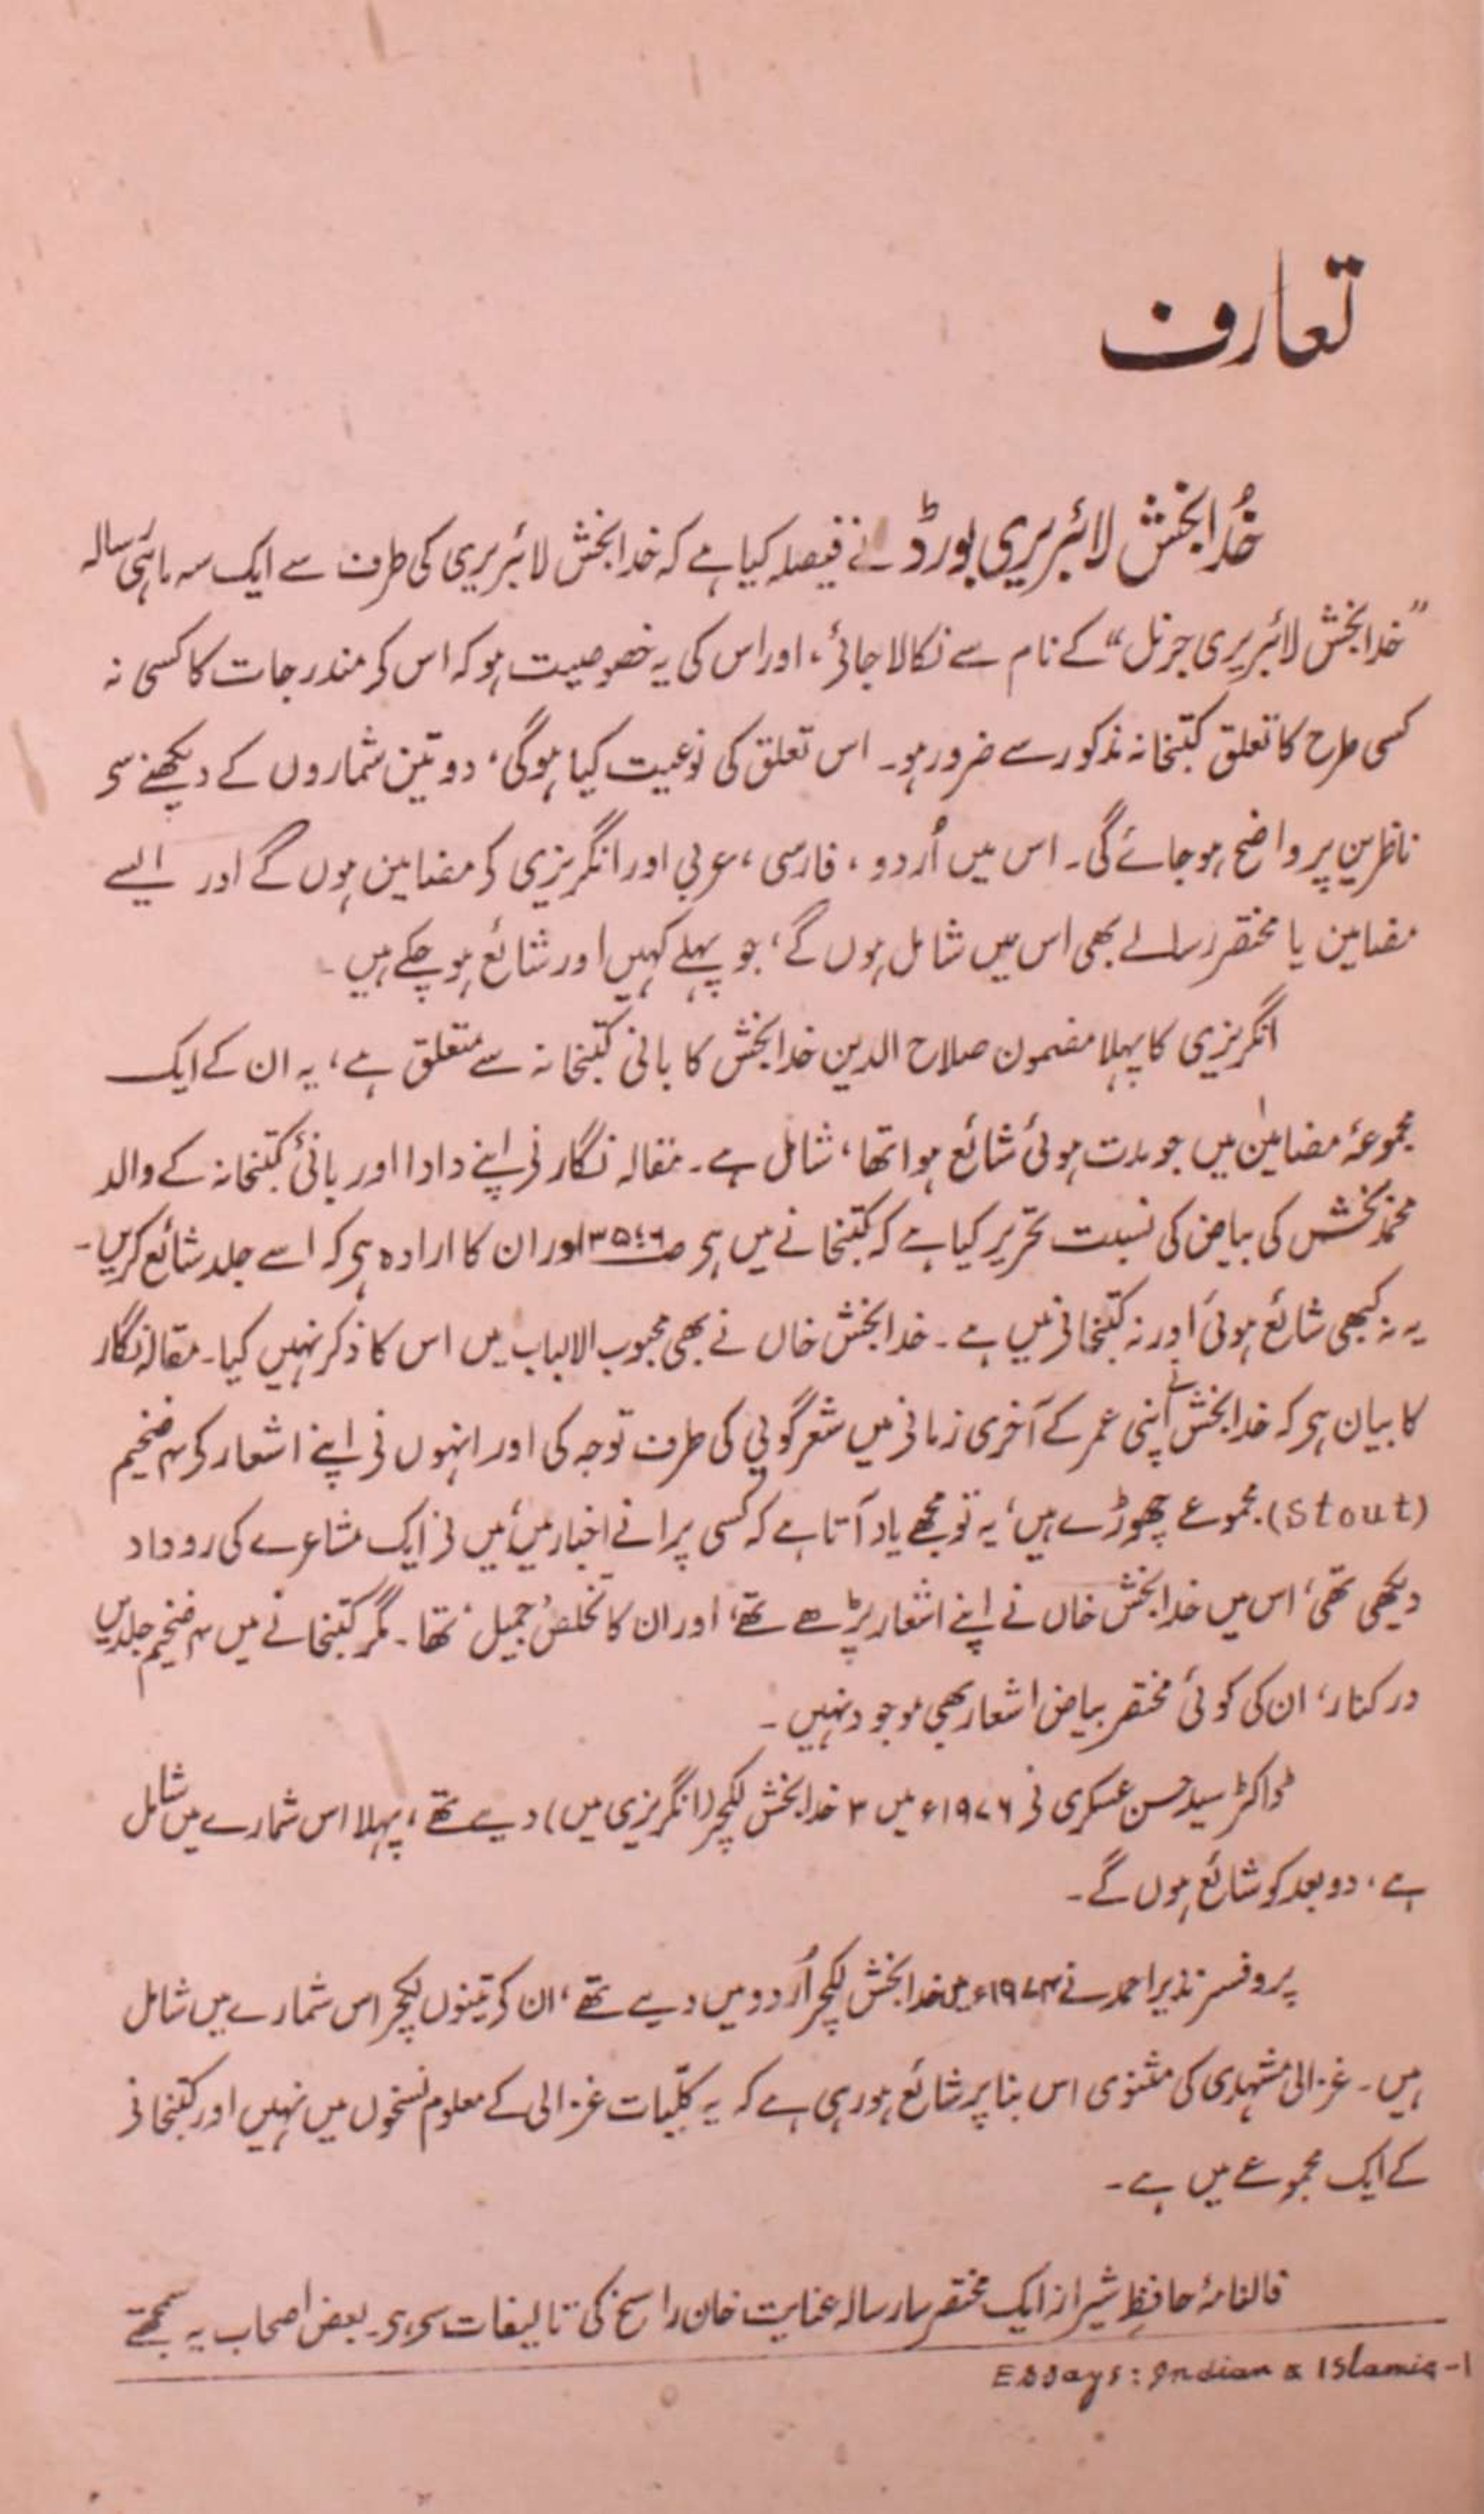 تعارف
خُدابخش لائبریری بورڈ نے فیصلہ کیا ہے کہ خدابخش لائبریری کی طرف سے ایک سہ ماہی رسالہ
”خدابخش لائبریری جرنل“ کے نام سے نکالا جائے، اور اس کی یہ خصوصیت ہو کہ اس کے مندرجات کا کسی نہ
کسی طرح کا تعلق کتبخانہ مذکور سے ضرور ہو۔ اس تعلق کی نوعیت کیا ہوگی، دو تین شماروں کے دیکھنے سے
ناظرین پر واضح ہو جائے گی۔ اس میں اُردو، فارسی، عربی اور انگریزی کے مضامین ہوں گے اور ایسے
مضامین یا مختصر رسالے بھی اس میں شامل ہوں گے، جو پہلے کہیں اور شائع ہو چکے ہیں۔
انگریزی کا پہلا مضمون صلاح الدین خدابخش کا بانی کتبخانہ سے متعلق ہے، یہ ان کے ایک
مجموعۂ مضامین میں جو مدت ہوئی شائع ہوا تھا، شامل ہے۔ مقالہ نگار نے اپنے دادا اور بانئ کتبخانہ کے والد
محمد بخش کی بیاض کی نسبت تحریر کیا ہے کہ کتبخانے میں ہے اور ان کا ارادہ ہے کہ اسے جلد شائع کریں۔
یہ نہ کبھی شائع ہوئی اور نہ کتبخانے میں ہے۔ خدابخش خاں نے بھی محبوب الالباب میں اس کا ذکر نہیں کیا۔ مقالہ نگار
کا بیان ہے کہ خدابخش نے اپنی عمر کے آخری زمانے میں شعر گوئی کی طرف توجہ کی اور انہوں نے اپنے اشعار کے ۴ ضخیم
(Stout) مجموعے چھوڑے ہیں، یہ تو مجھے یاد آتا ہے کہ کسی پرانے اخبار میں، میں نے ایک مشاعرے کی روداد
دیکھی تھی، اس میں خدابخش خاں نے اپنے اشعار پڑھے تھے، اور ان کا تخلص جمیل تھا۔ مگر کتبخانے میں ۴ ضخیم جلدیں
درکنار، ان کی کوئی مختصر بیاض اشعار بھی موجود نہیں۔
ڈاکٹر سید حسن عسکری نے ۱۹۷۶ء میں ۳ خدابخش لکچر (انگریزی میں) دیے تھے، پہلا اس شمارے میں شامل
ہے، دو بعد کو شائع ہوں گے۔
پروفسر نذیر احمد نے ۱۹۷۴ء میں خدابخش لکچر اُردو میں دیے تھے، ان کے تینوں لکچر اس شمارے میں شامل
ہیں۔ غزالی مشہدی کی مثنوی اس بنا پر شائع ہو رہی ہے کہ یہ کلّیات غزالی کے معلوم نسخوں میں نہیں اور کتبخانے
کے ایک مجموعے میں ہے۔
فالنامۂ حافظِ شیراز ایک مختصر سا رسالہ عنایت خان راسخ کی تالیفات سے ہے۔ بعض اصحاب یہ سمجھتے
۱- Essays: Indian & Islamic